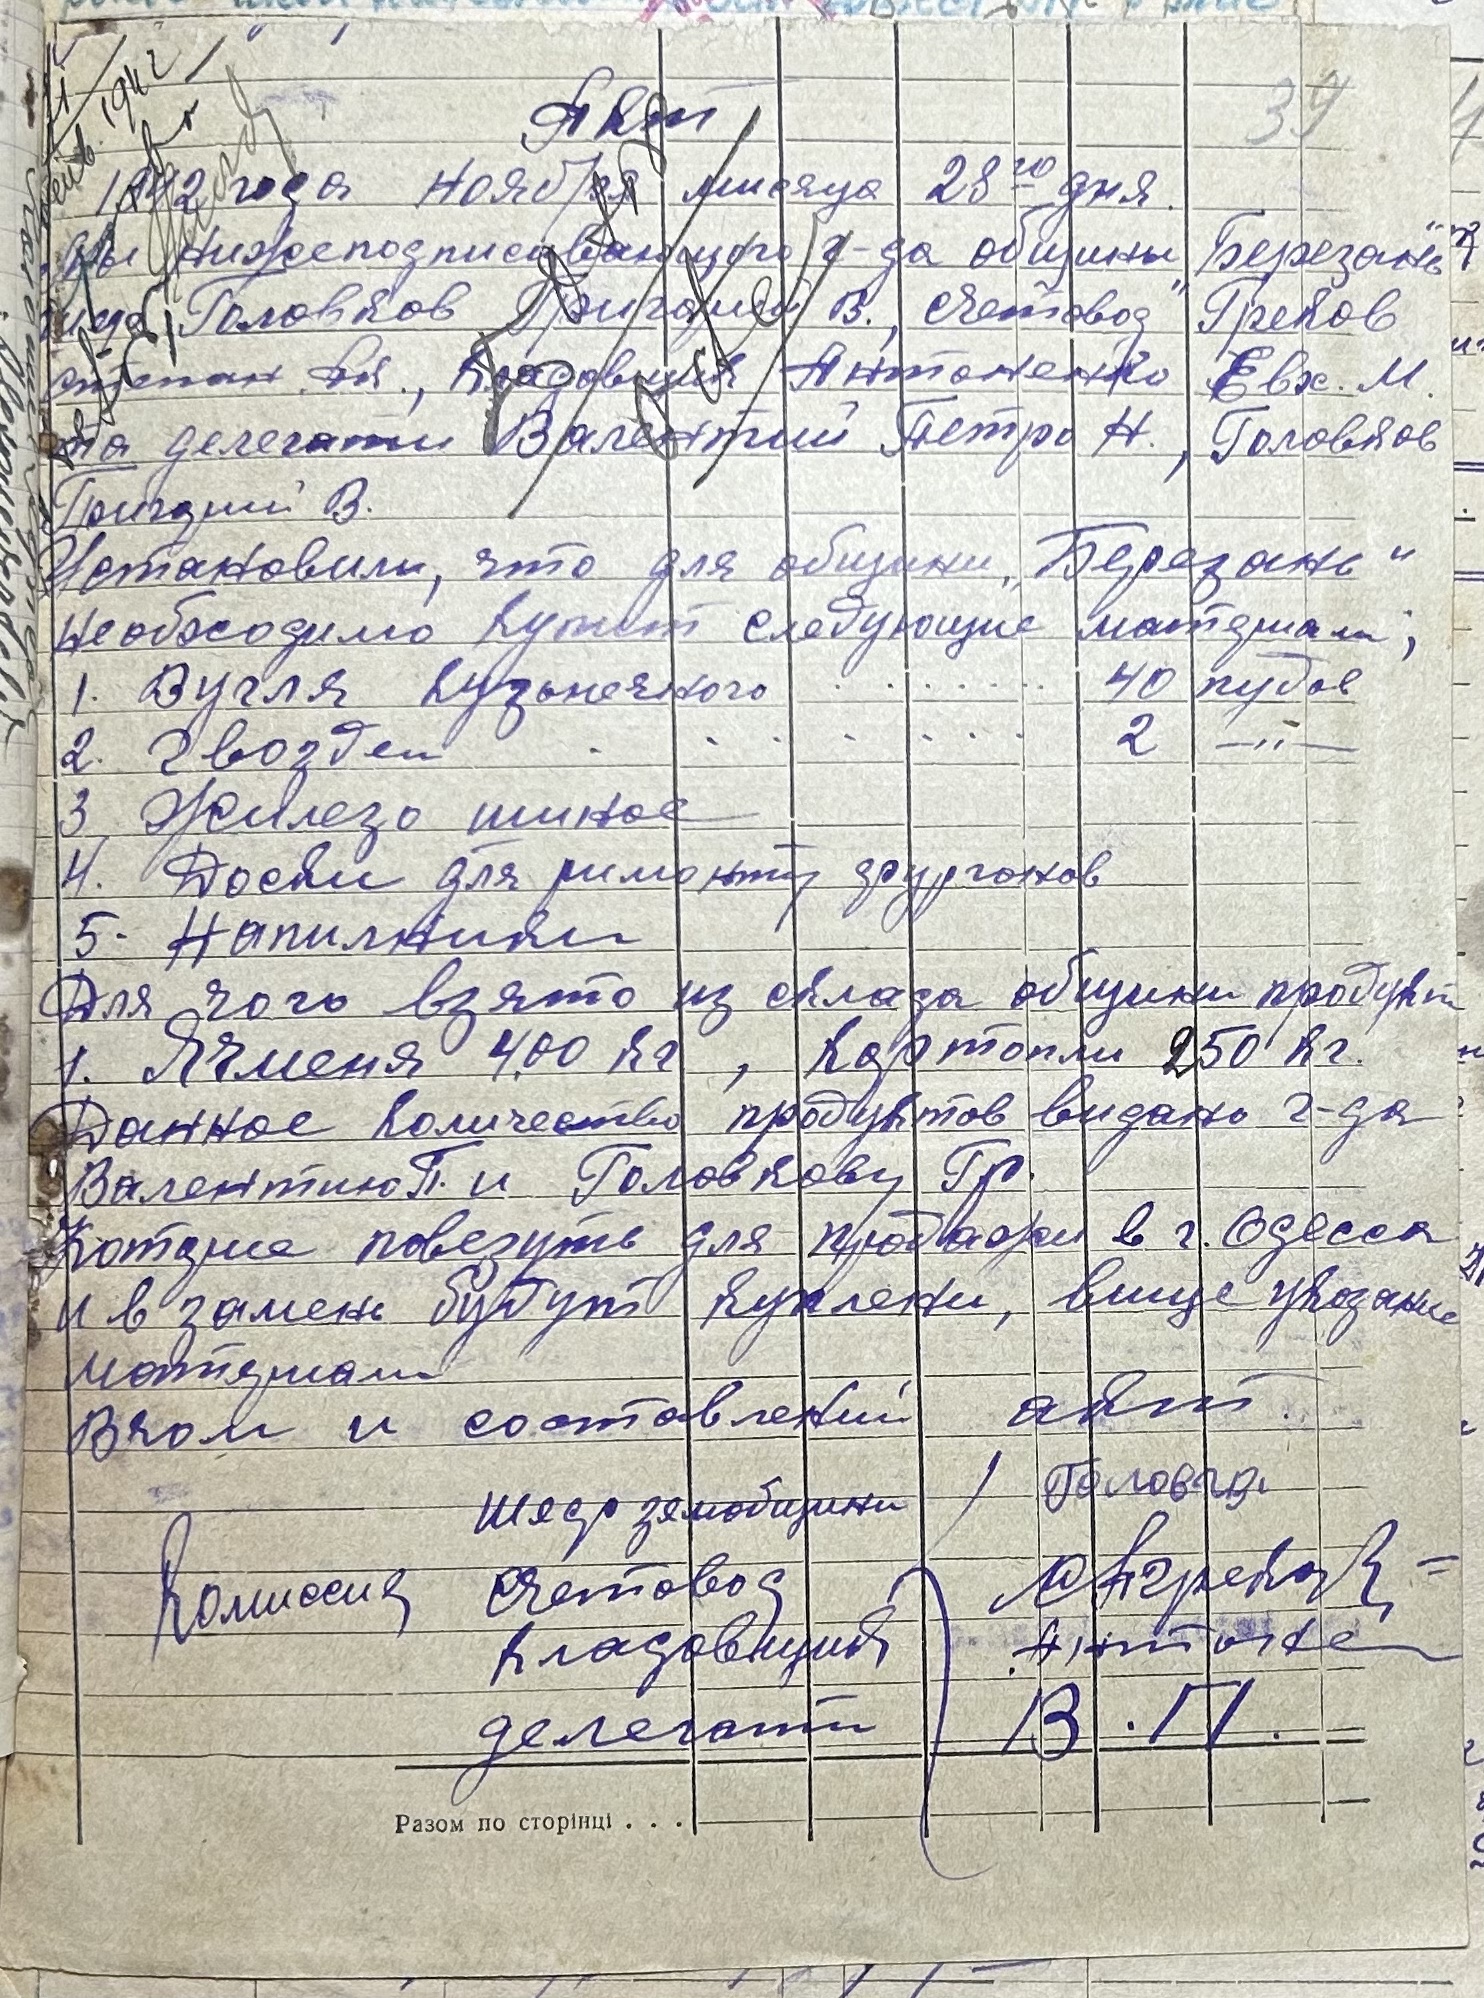 39
Акт
1942 года ноября мисяца 28го дня.
Мы нижеподписавающиеся г-да общины „Березань"
Головков Григорий В., счетовод Греков
степан Ан., Кладовщик Антоненко Евх. М.
та делегати Валентий Петро Н., Головков
Григорий В.
Установили, что для общини „Березань"
необходимо купит следующие материали;
1. Вугля кузьнечного . . . . . . . 40 пудов
2. Гвоздеи . . . . . . . 2 —"—
3 Жилезо шиное
4. Доски для римонту фургонов
5. Напилники
Для чого взято из склада общини продукт
1. Ячменя 400 кг, картопли 250 кг.
Данное количество продуктов видано г-да
Валентию П. и Головкову Гр.
Которие повезуть для продажи в г. Одесса
и в замень будут куплени, више указание
материали
Вчом и составлений акт.
Шефземобщини / Головков
Комиссия счетовод Греков
кладовщик Антоне
делегати В. П.
Разом по сторінці . . .